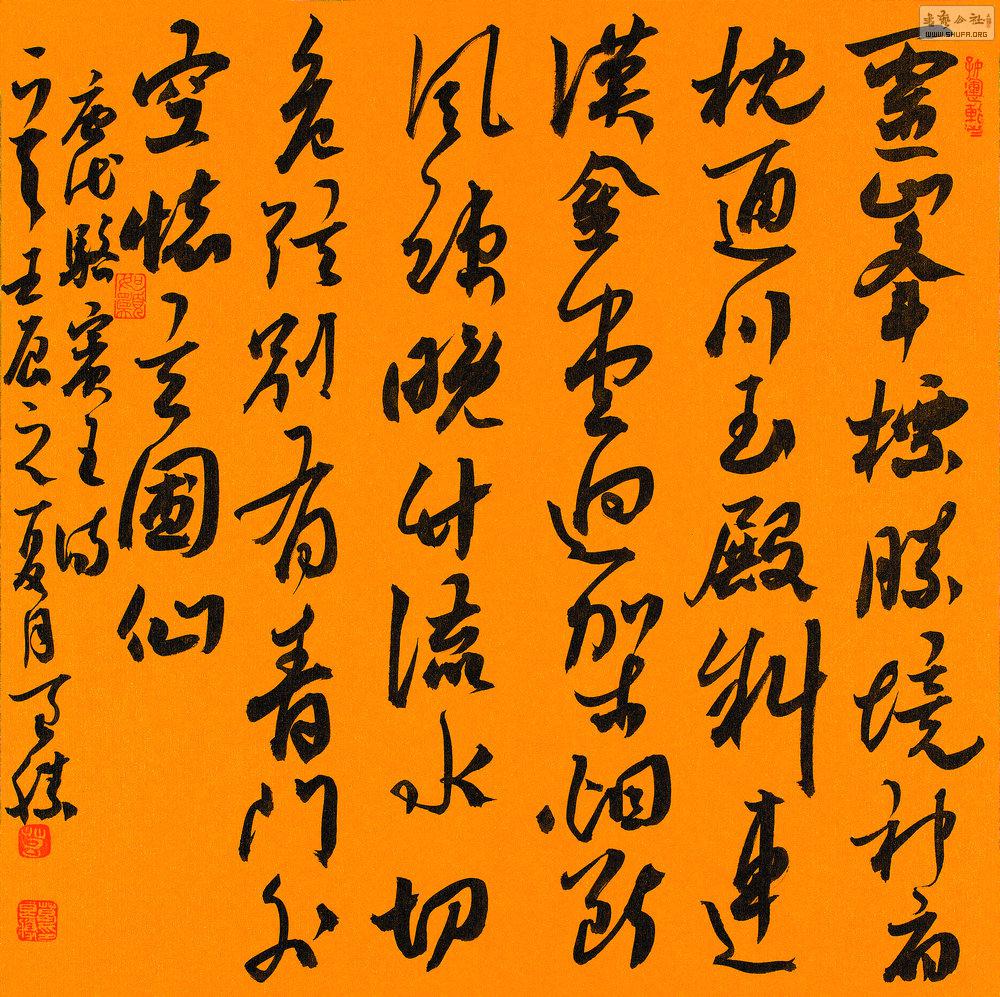 靈峯標勝境神府
枕通川玉殿斜連
漢金堂迥架烟斷
風疎晚竹流水切
危弦别有青門外
空懷玄圃仙
唐代駱賓王詩
一首壬辰之夏月
書藝公社
WWW.SHUFA.ORG